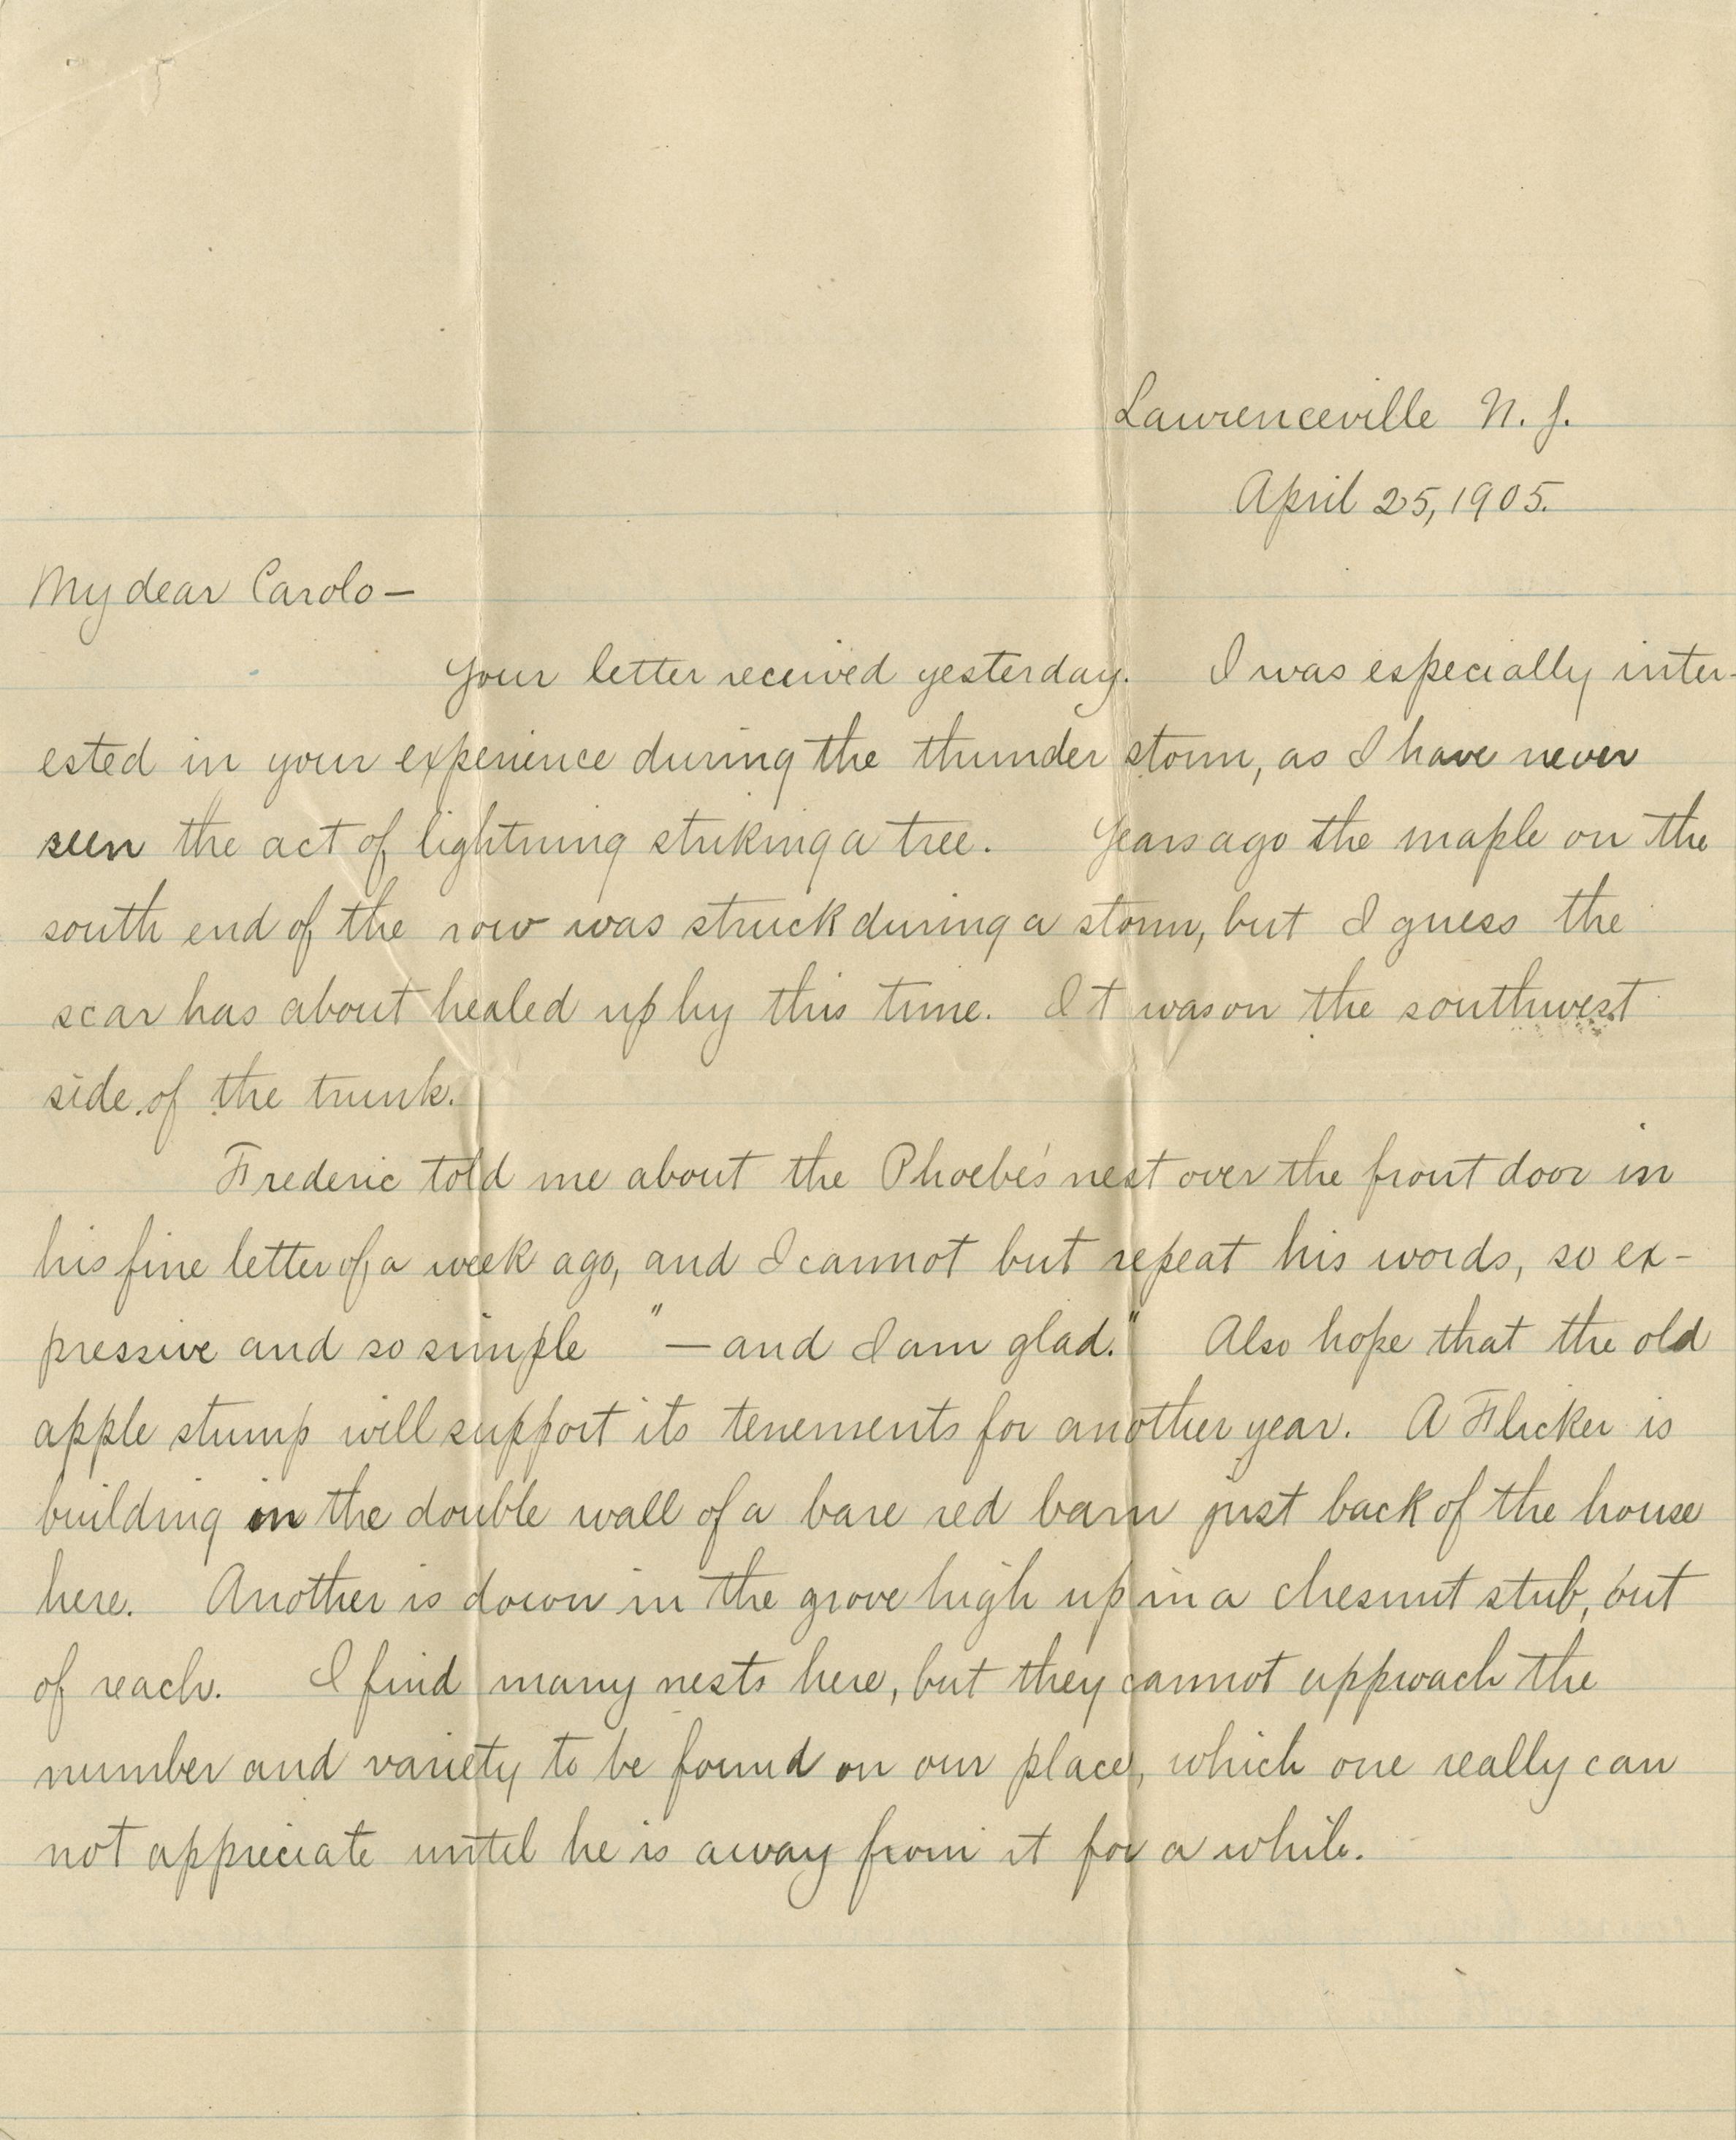 Lawrenceville N. J.
April 25, 1905.
My dear Carolo —
Your letter received yesterday. I was especially inter-
ested in your experience during the thunder storm, as I have never
seen the act of lightning striking a tree. Years ago the maple on the
south end of the row was struck during a storm, but I guess the
scar has about healed up by this time. It was on the southwest
side of the trunk.
Frederic told me about the Phoebe's nest over the front door in
his fine letter of a week ago, and I cannot but repeat his words, so ex-
pressive and so simple "— and I am glad." Also hope that the old
apple stump will support its tenements for another year. A Flicker is
building in the double wall of a bare red barn just back of the house
here. Another is down in the grove high up in a chesnut stub, out
of reach. I find many nests here, but they cannot approach the
number and variety to be found on our place, which one really can
not appreciate until he is away from it for a while.